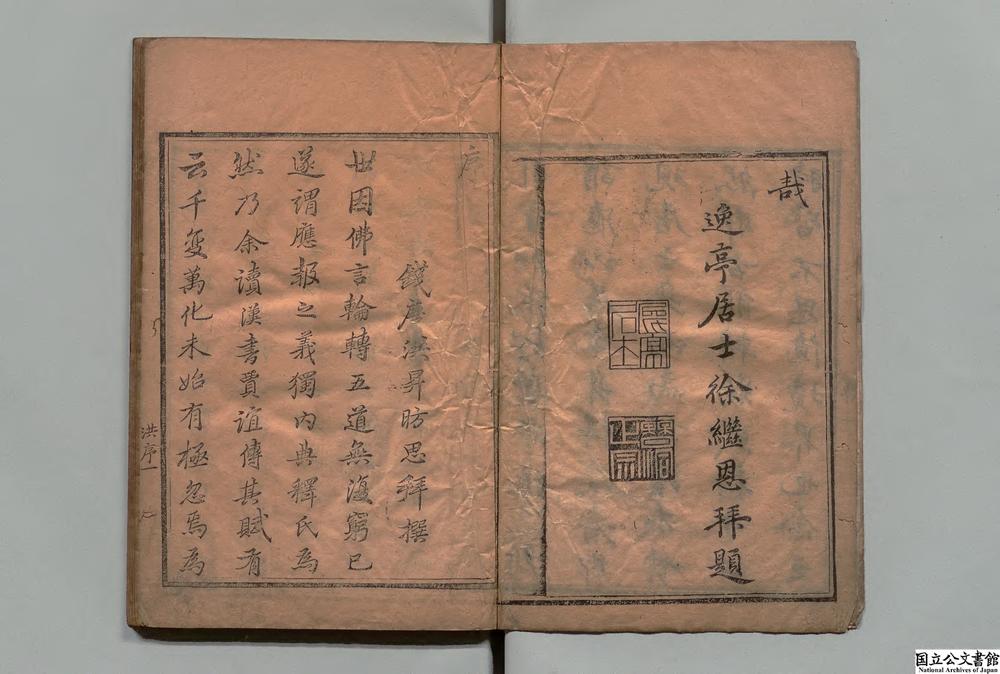 哉
逸亭居士徐繼恩拜題
序
錢唐洪昇昉思拜撰
世因佛言輪轉五道無復窮已
遂謂應報之義獨內典釋氏為
然乃余讀漢書賈誼傳其賦有
云千變萬化未始有極忽焉為
洪序一
国立公文書館
National Archives of Japan